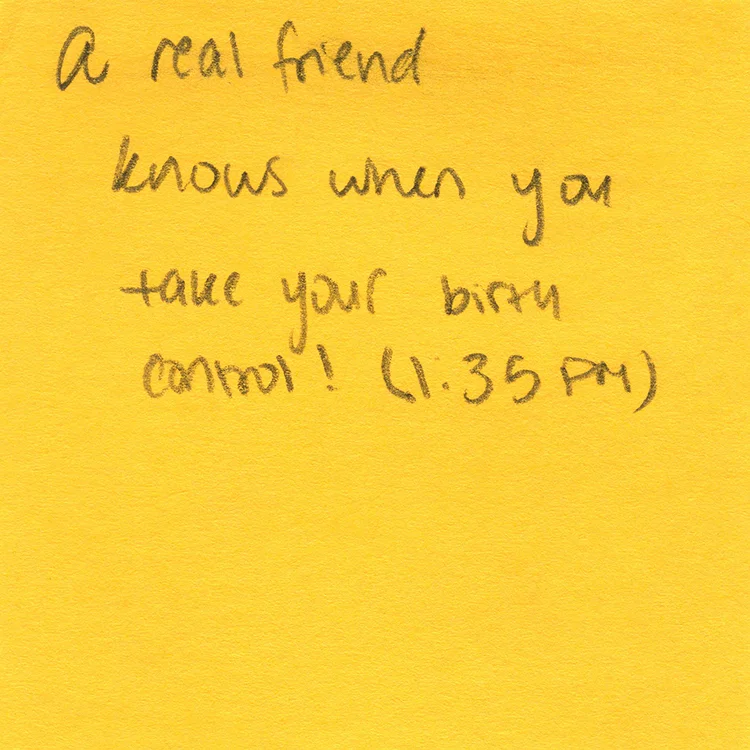 A real friend
knows when you
take your birth
control! (1:35 PM)